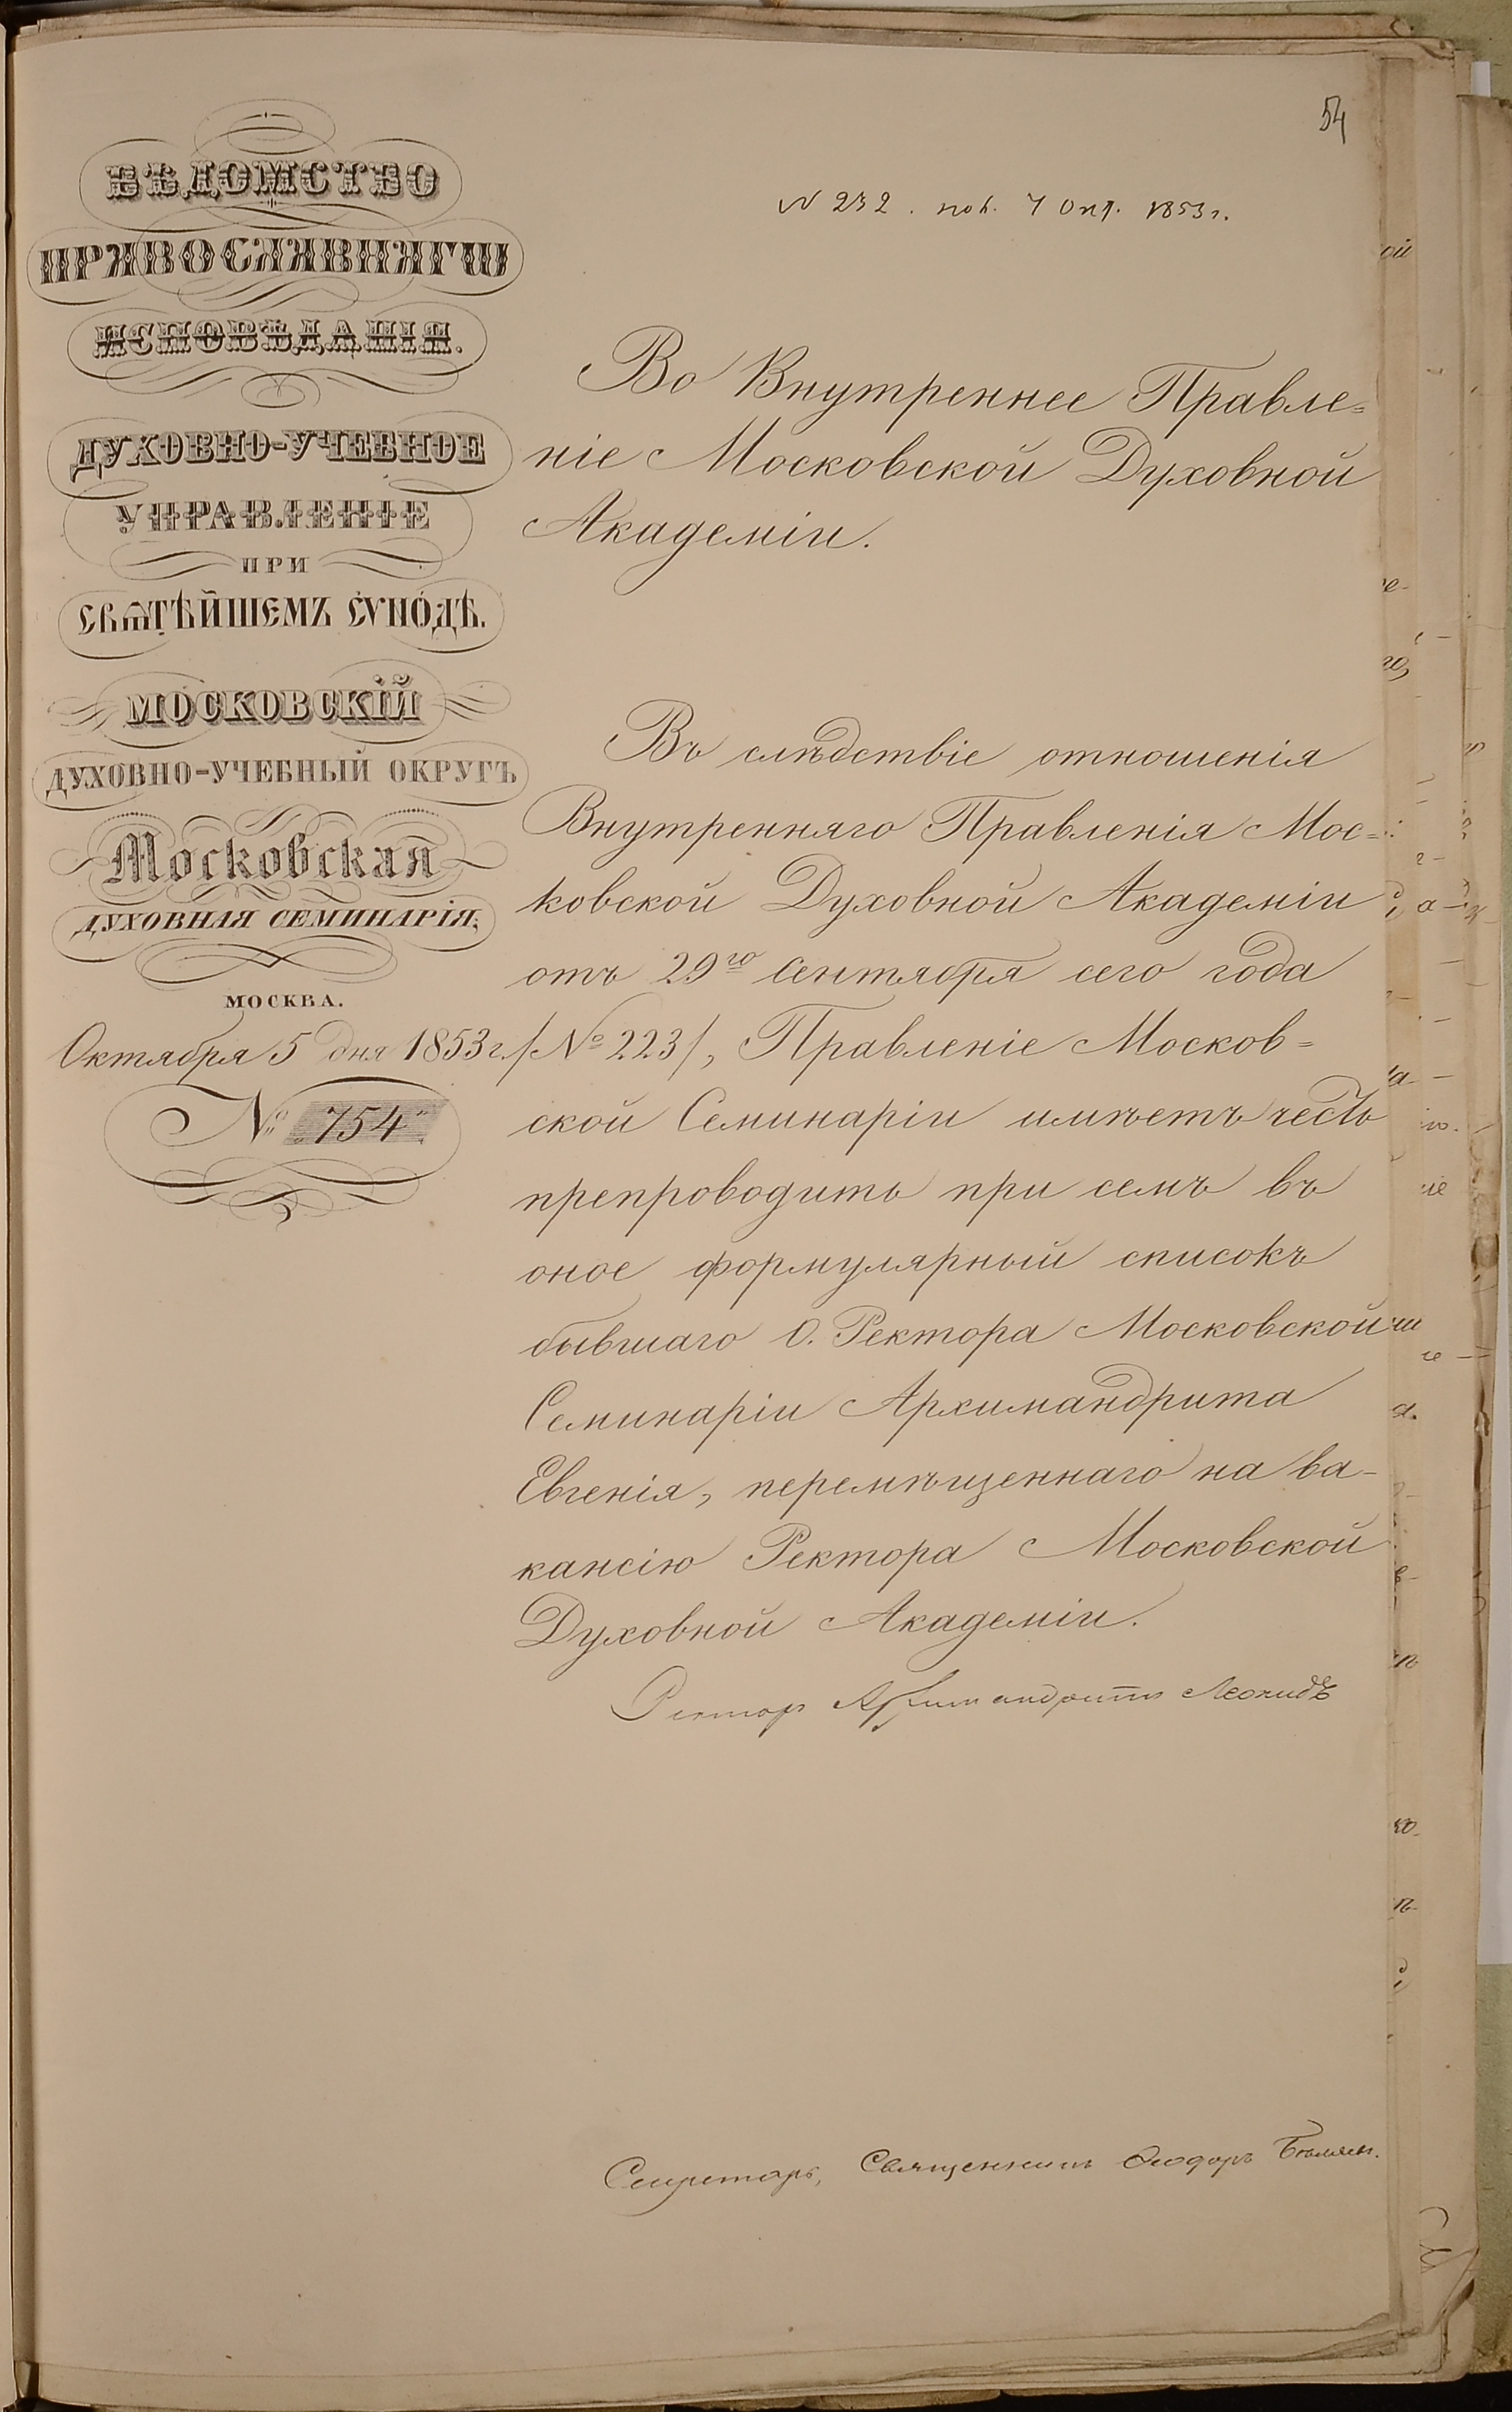 54
N 232. пол. 7 Окт. 1853 г.
ВѢДОМСТВО
ПРАВОСЛАВНАГѠ
ИСПОВѢДАНІЯ.
ДУХОВНО-УЧЕБНОЕ
УПРАВЛЕНІЕ
ПРИ
СВѦТѢЙШЕМЪ СѴНОДѢ.
МОСКОВСКІЙ
ДУХОВНО-УЧЕБНЫЙ ОКРУГЪ
Московская
ДУХОВНАЯ СЕМИНАРІЯ.
МОСКВА.
Октября 5 дня 1853 г.
№ 754
Во Внутреннее Правле=
ніе Московской Духовной
Академіи.
Въ слѣдствіе отношенія
Внутренняго Правленія Мос=
ковской Духовной Академіи
отъ 29го Сентября сего года
/№ 223/, Правленіе Москов=
ской Семинаріи имѣетъ честь
препроводить при семъ въ
оное формулярный списокъ
бывшаго О. Ректора Московской
Семинаріи Архимандрита
Евгенія, перемѣщеннаго на ва-
кансію Ректора Московской
Духовной Академіи.
Ректоръ Архимандритъ Леонидъ
Секретарь, Священникъ Ѳеодоръ